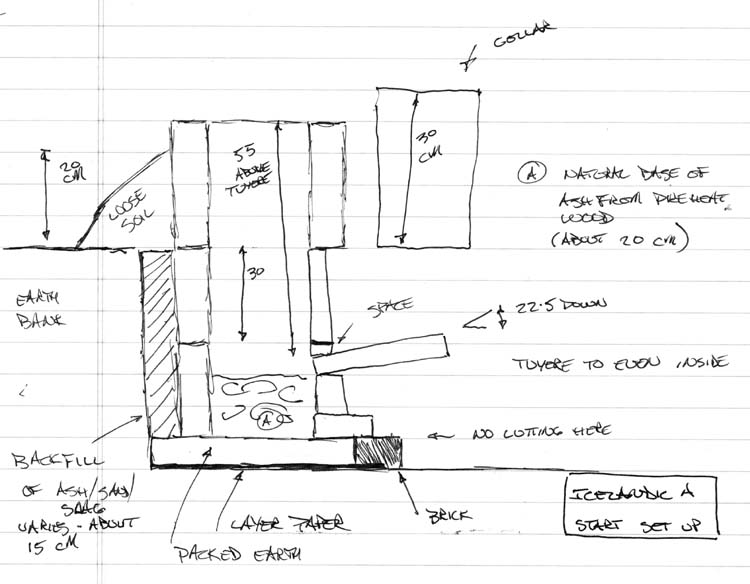 COLLAR
20
CM
LOOSE
SOIL
55
ABOVE
TUYERE
30
CM
A NATURAL BASE OF
ASH FROM PREHEAT
WOOD
(ABOUT 20 CM)
30
EARTH
BANK
SPACE
22.5 DOWN
TUYERE TO EVEN INSIDE
A
NO CUTTING HERE
BACKFILL
OF ASH/SAND/
SLAG
VARIES - ABOUT
15 CM
LAYER PAPER
BRICK
PACKED EARTH
ICELANDIC A
START SET UP